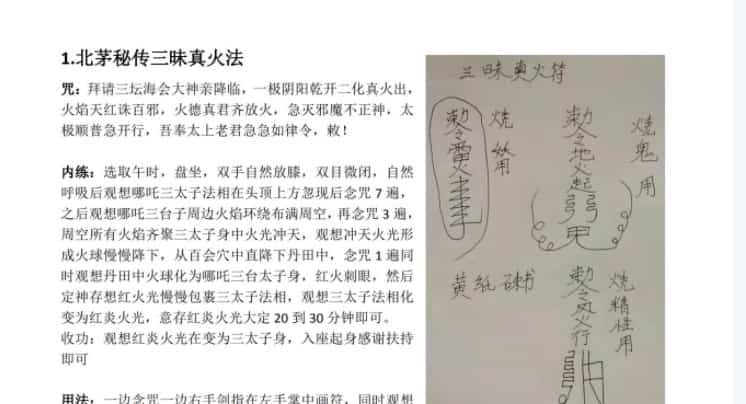 1.北茅秘传三昧真火法
咒：拜请三坛海会大神亲降临，一极阴阳乾开二化真火出，
火焰天红诛百邪，火德真君齐放火，急灭邪魔不正神，太
极顺普急开行，吾奉太上老君急急如律令，敕！
内练：选取午时，盘坐，双手自然放膝，双目微闭，自然
呼吸后观想哪吒三太子法相在头顶上方忽现后念咒 7 遍，
之后观想哪吒三台子周边火焰环绕布满周空，再念咒 3 遍，
周空所有火焰齐聚三太子身中火光冲天，观想冲天火光形
成火球慢慢降下，从百会穴中直降下丹田中，念咒 1 遍同
时观想丹田中火球化为哪吒三台太子身，红火刺眼，然后
定神存想红火光慢慢包裹三太子法相，观想三太子法相化
变为红炎火光，意存红炎火光大定 20 到 30 分钟即可。
收功：观想红炎火光在变为三太子身，入座起身感谢扶持
即可
用法：一边念咒一边右手剑指在左手掌中画符，同时观想
三昧真火符
敕令雷火
烧
用
敕令地火起
弱
甲
烧鬼用
黄纸硃书
敕令风火行
烧精怪用